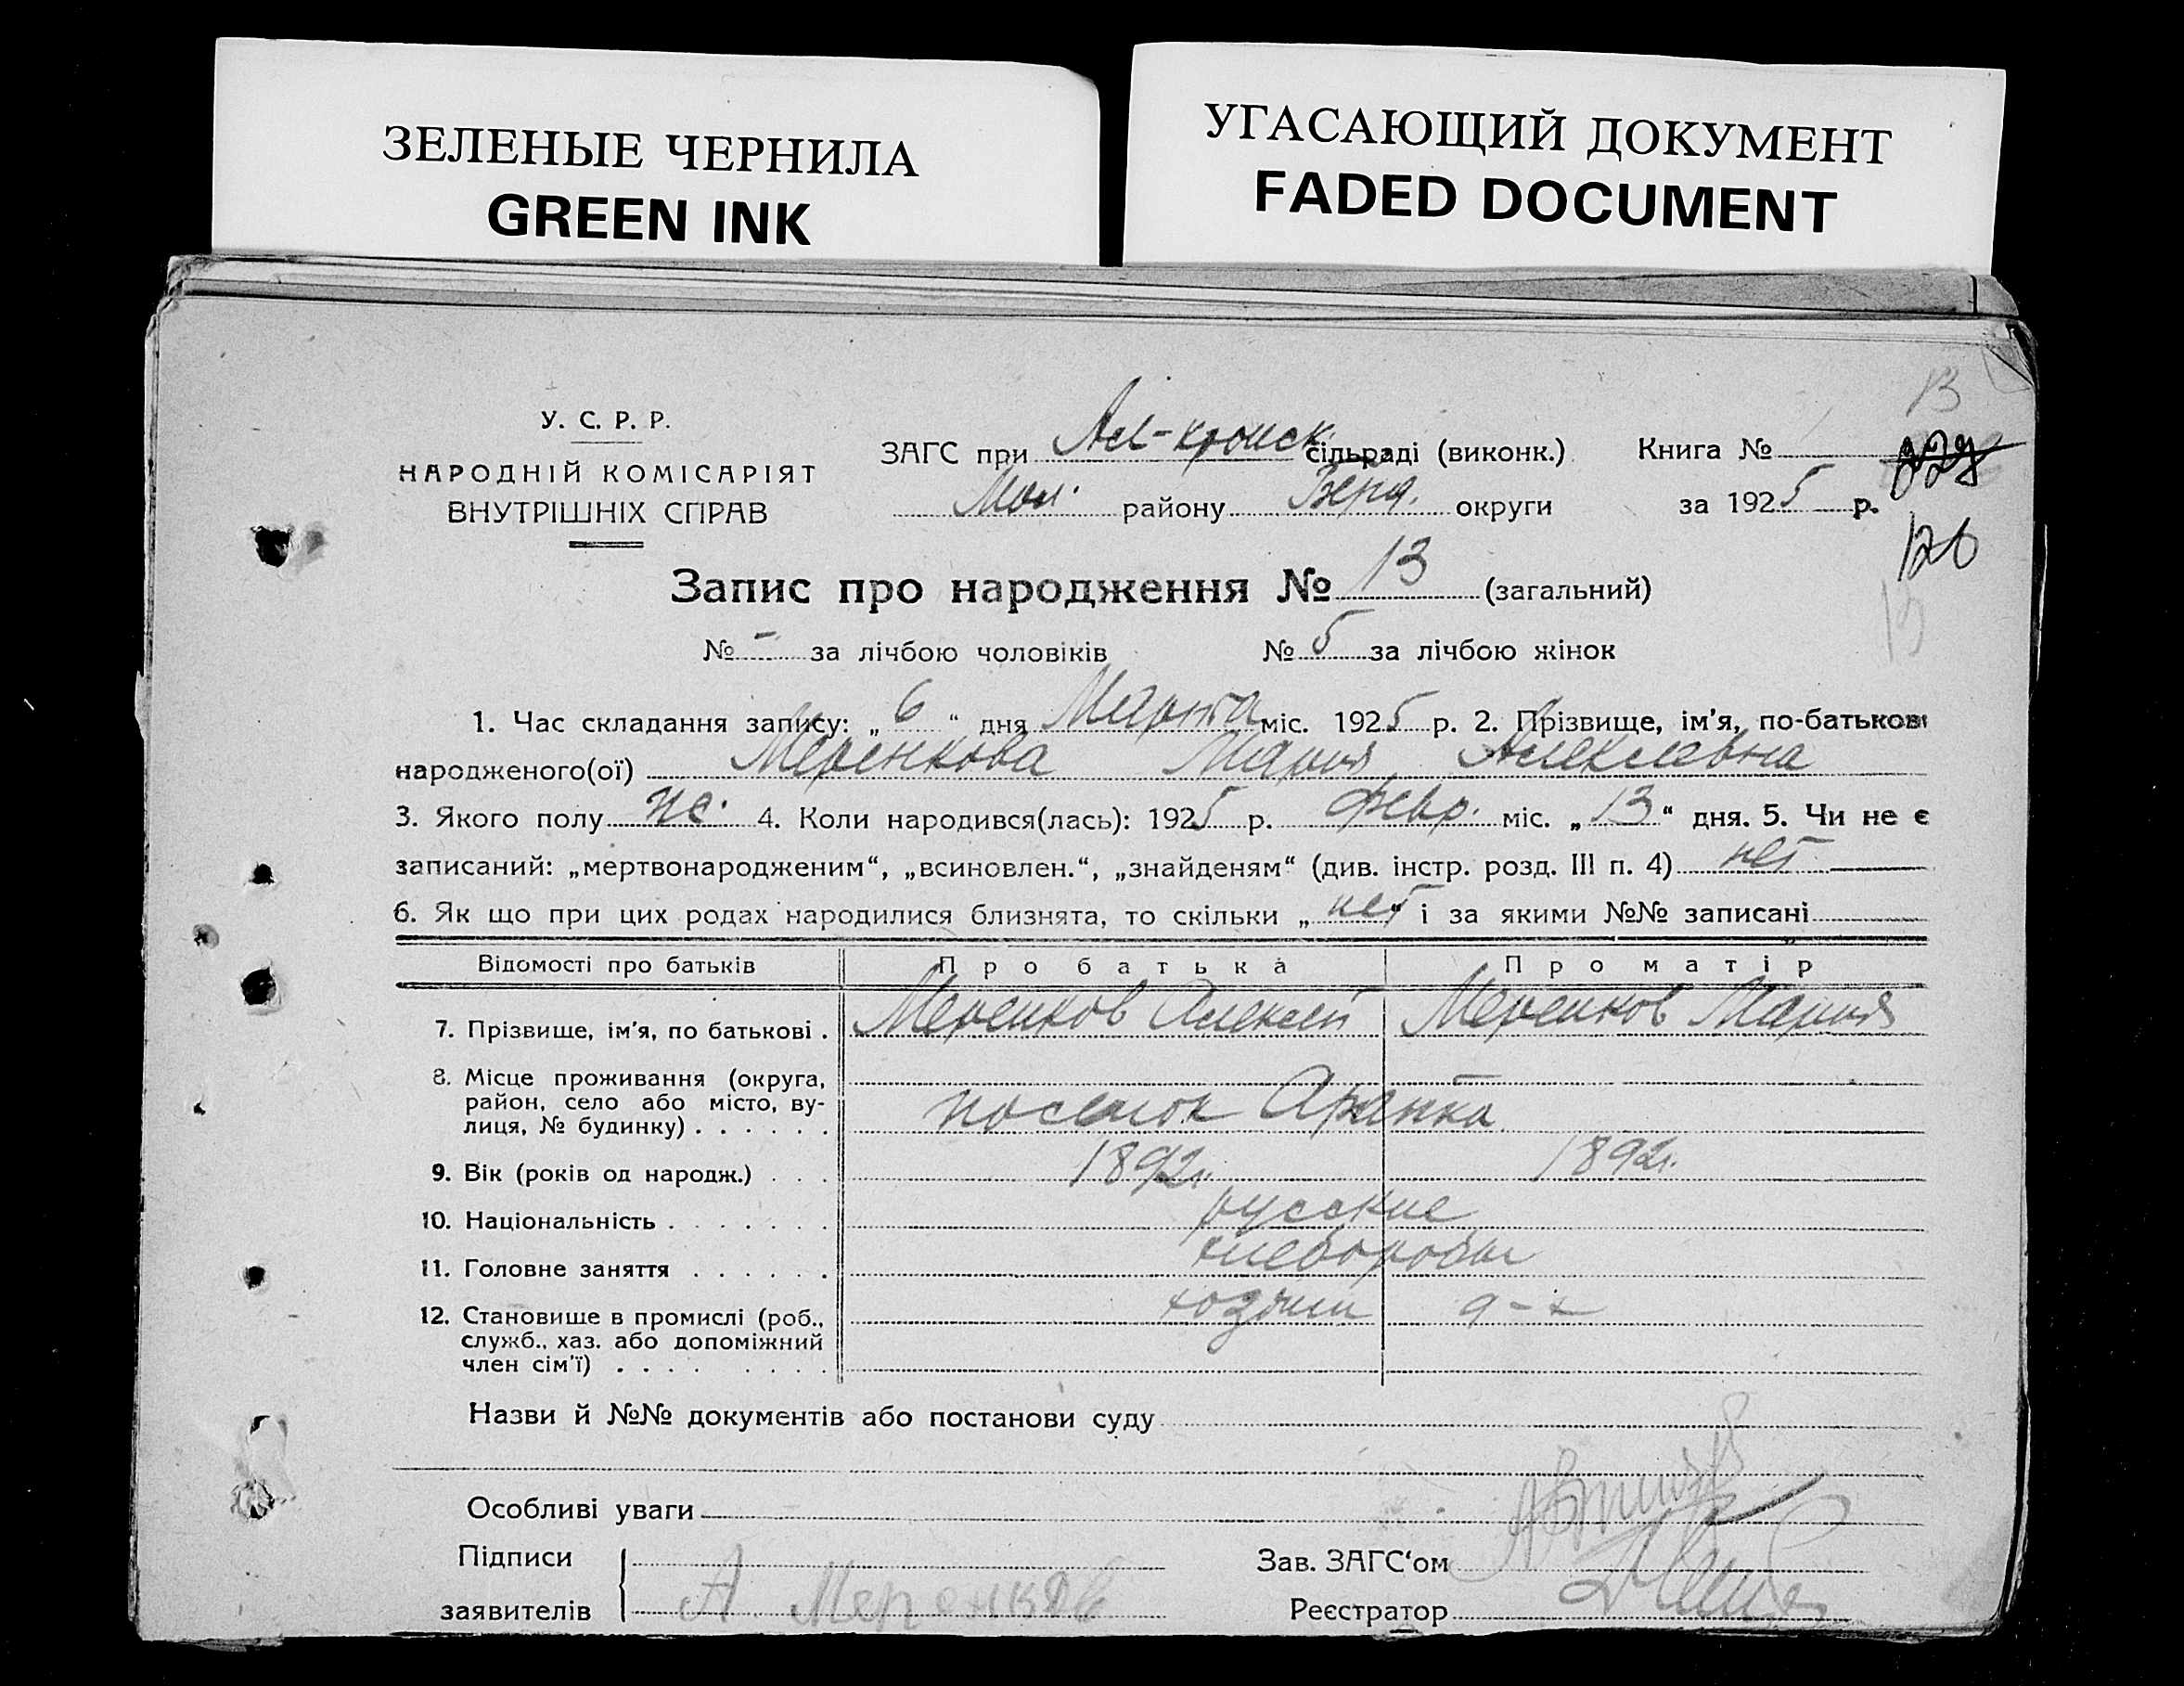 ЗЕЛЕНЫЕ ЧЕРНИЛА
GREEN INK
УГАСАЮЩИЙ ДОКУМЕНТ
FADED DOCUMENT
13
У. С. Р. Р.
НАРОДНІЙ КОМІСАРІЯТ
ВНУТРІШНІХ СПРАВ
ЗАГС при сільраді (виконк.) Книга №
Мол. району Берд. округи за 1925 р.
126
Запис про народження № 13 (загальний)
13
№ - за лічбою чоловіків № 5 за лічбою жінок
1. Час складання запису: „ 6 “ дня Марта міс. 1925 р. 2. Прізвище, ім'я, по-батькові
народженого(ої) Меренкова Мария Алексеевна
3. Якого полу ж. 4. Коли народився(лась): 1925 р. февр. міс. „ 13 “ дня. 5. Чи не є
записаний: „мертвонародженим“, „всиновлен.“, „знайденям“ (див. інстр. розд. III п. 4) нет
6. Як що при цих родах народилися близнята, то скільки „ нет “ і за якими №№ записані
Відомості про батьків Про батька Про матір
7. Прізвище, ім'я, по батькові . Меренков Алексей Меренков Мария
8. Місце проживання (округа,
район, село або місто, ву-
лиця, № будинку) . . . . . . поселок
9. Вік (років од народж.) . . . 1892г. 1892г.
10. Національність . . . . . . . русские
11. Головне заняття . . . . . . хлеборобы
12. Становище в промислі (роб.,
служб., хаз. або допоміжний
член сім'ї) . . . . . . . .
Назви й №№ документів або постанови суду
Особливі уваги
Підписи
заявителів А Меренков
Зав. ЗАГС‘ом
Реєстратор